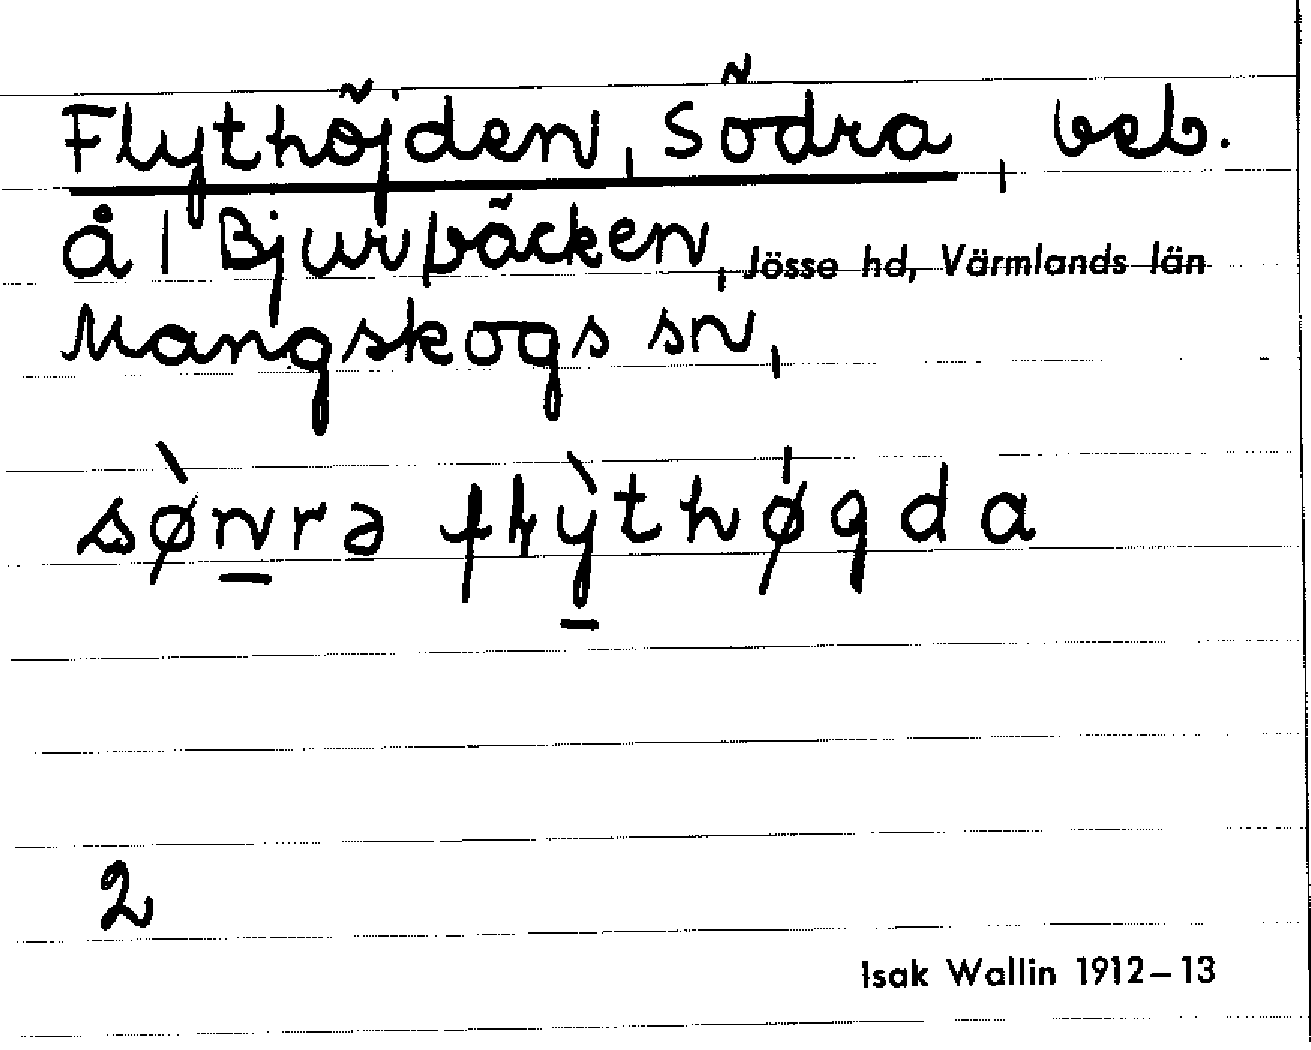 Flythöjden, Södra, beb.
å 1 Bjurbäcken, Jösse hd, Värmlands län
Mangskogs sn,
sø̀n̲rə fɽỳ̲thøgda
2
Isak Wallin 1912–13